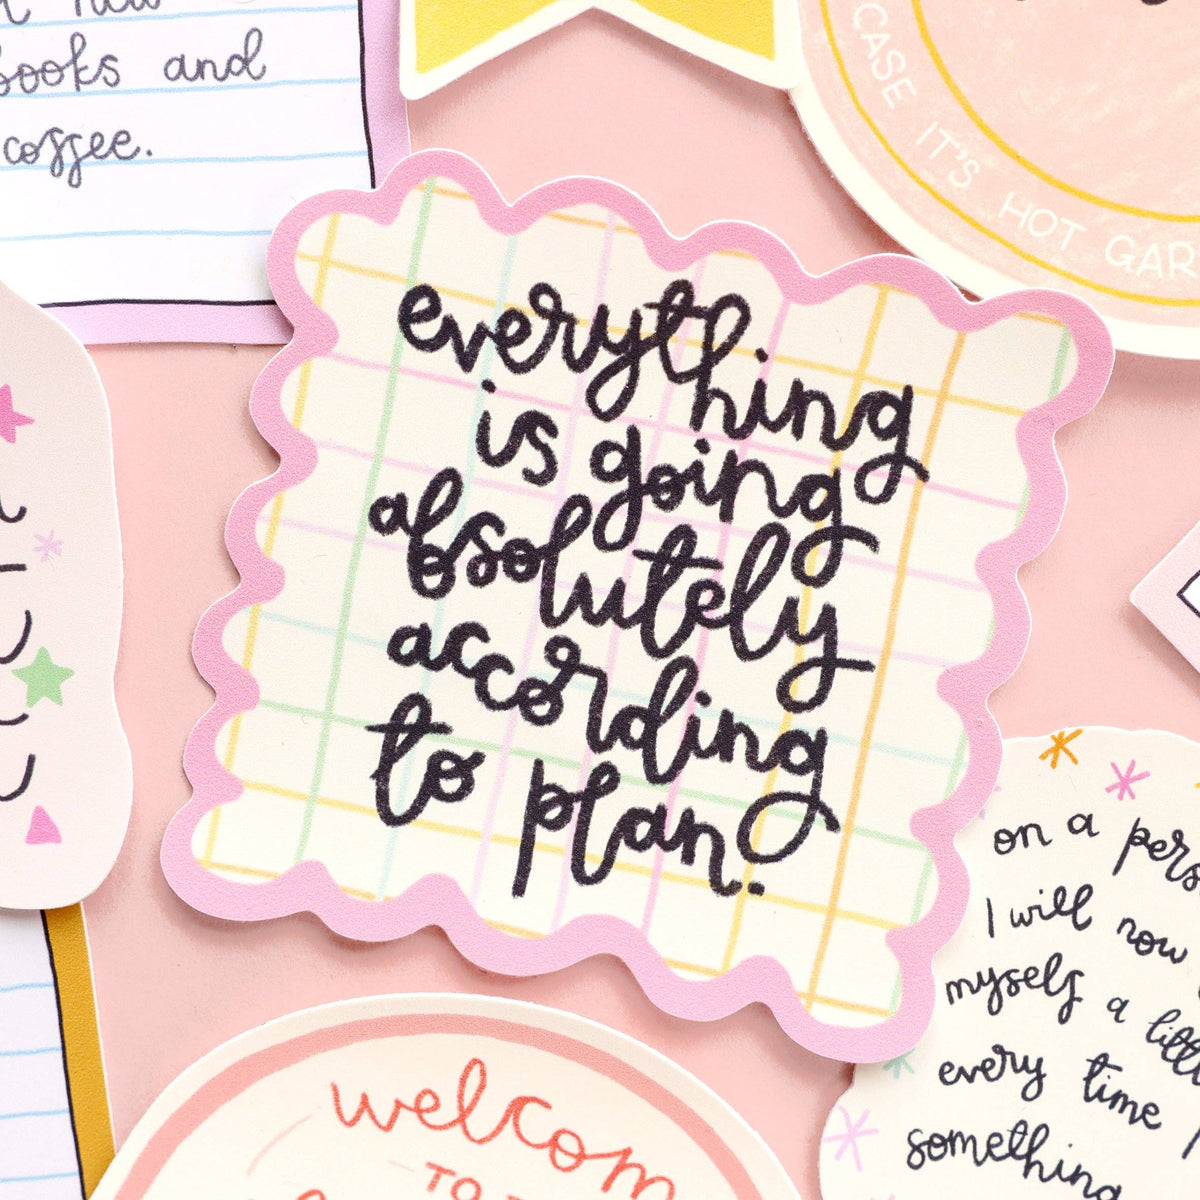 books and
coffee.
CASE IT'S HOT GAR
everything
is going
absolutely
according
to plan.
on a
I will now
myself a
every time
something
welcom
TO